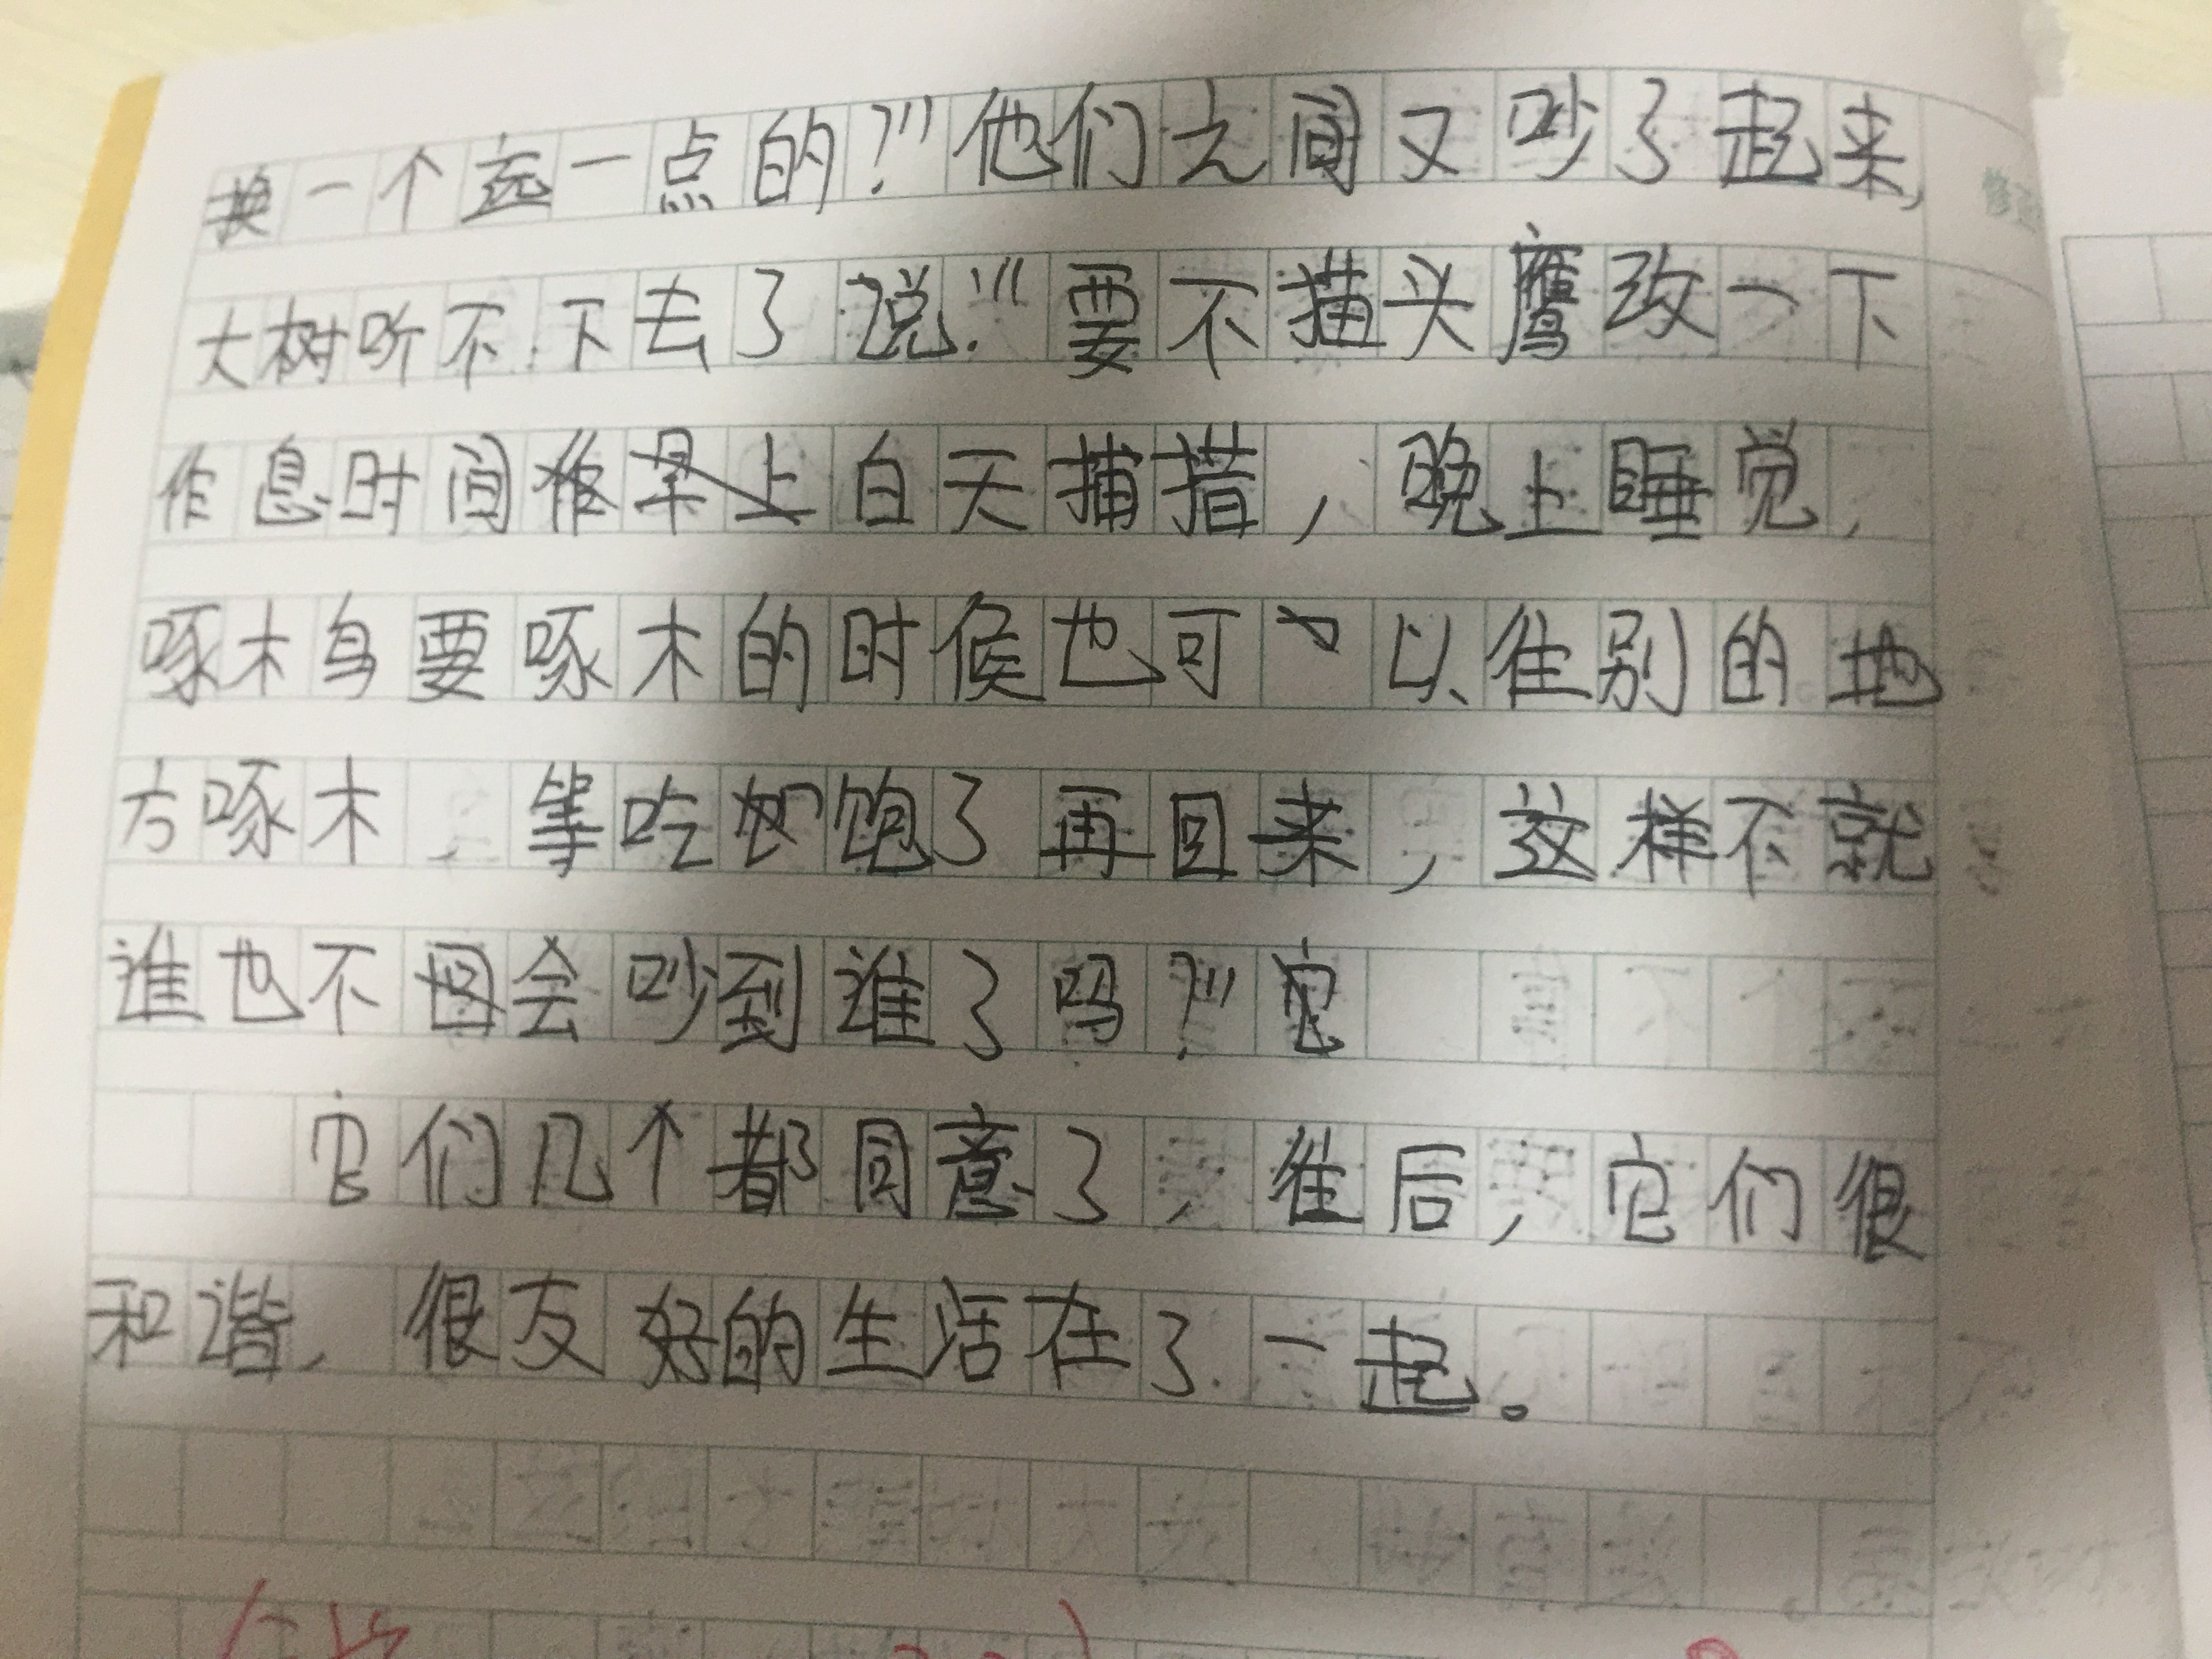 换一个远一点的？”他们之间又吵了起来，
大树听不下去了说：“要不猫头鹰改一下
作息时间白天捕措，晚上睡觉，
啄木鸟要啄木的时候也可以往别的地
方啄木，等吃饱了再回来，这样不就
谁也不会吵到谁了吗？”
它们几个都同意了，往后，它们很
和谐，很友好的生活在了一起。